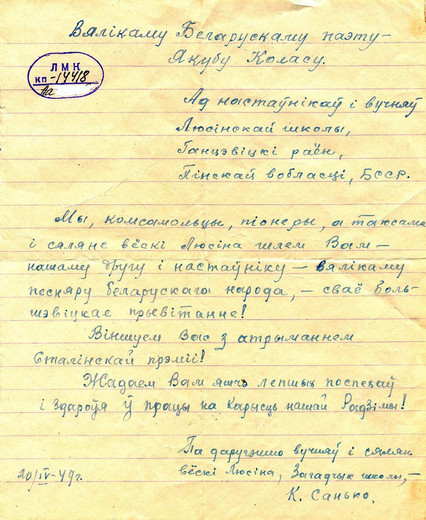 Вялікаму Беларускаму паэту –
Якубу Коласу.
ЛМК
КП-14418
Ад настаўнікаў і вучняў
Люсінскай школы,
Ганцэвіцкі раён,
Пінскай вобласці, БССР.
Мы, комсамольцы, піонеры, а таксама
і сяляне вёскі Люсіна шлем Вам –
нашаму другу і настаўніку – вялікаму
песняру беларускага народа, – сваё боль-
шэвіцкае прывітанне!
Віншуем Вас з атрыманнем
Сталінскай прэміі!
Жадаем Вам яшчэ лепшых поспехаў
і здароўя ў працы на карысць нашай Радзімы!
Па даручэнню вучняў і сялян
вёскі Люсіна, Загадчык школы, –
20/IV-49г.
К. Санько.